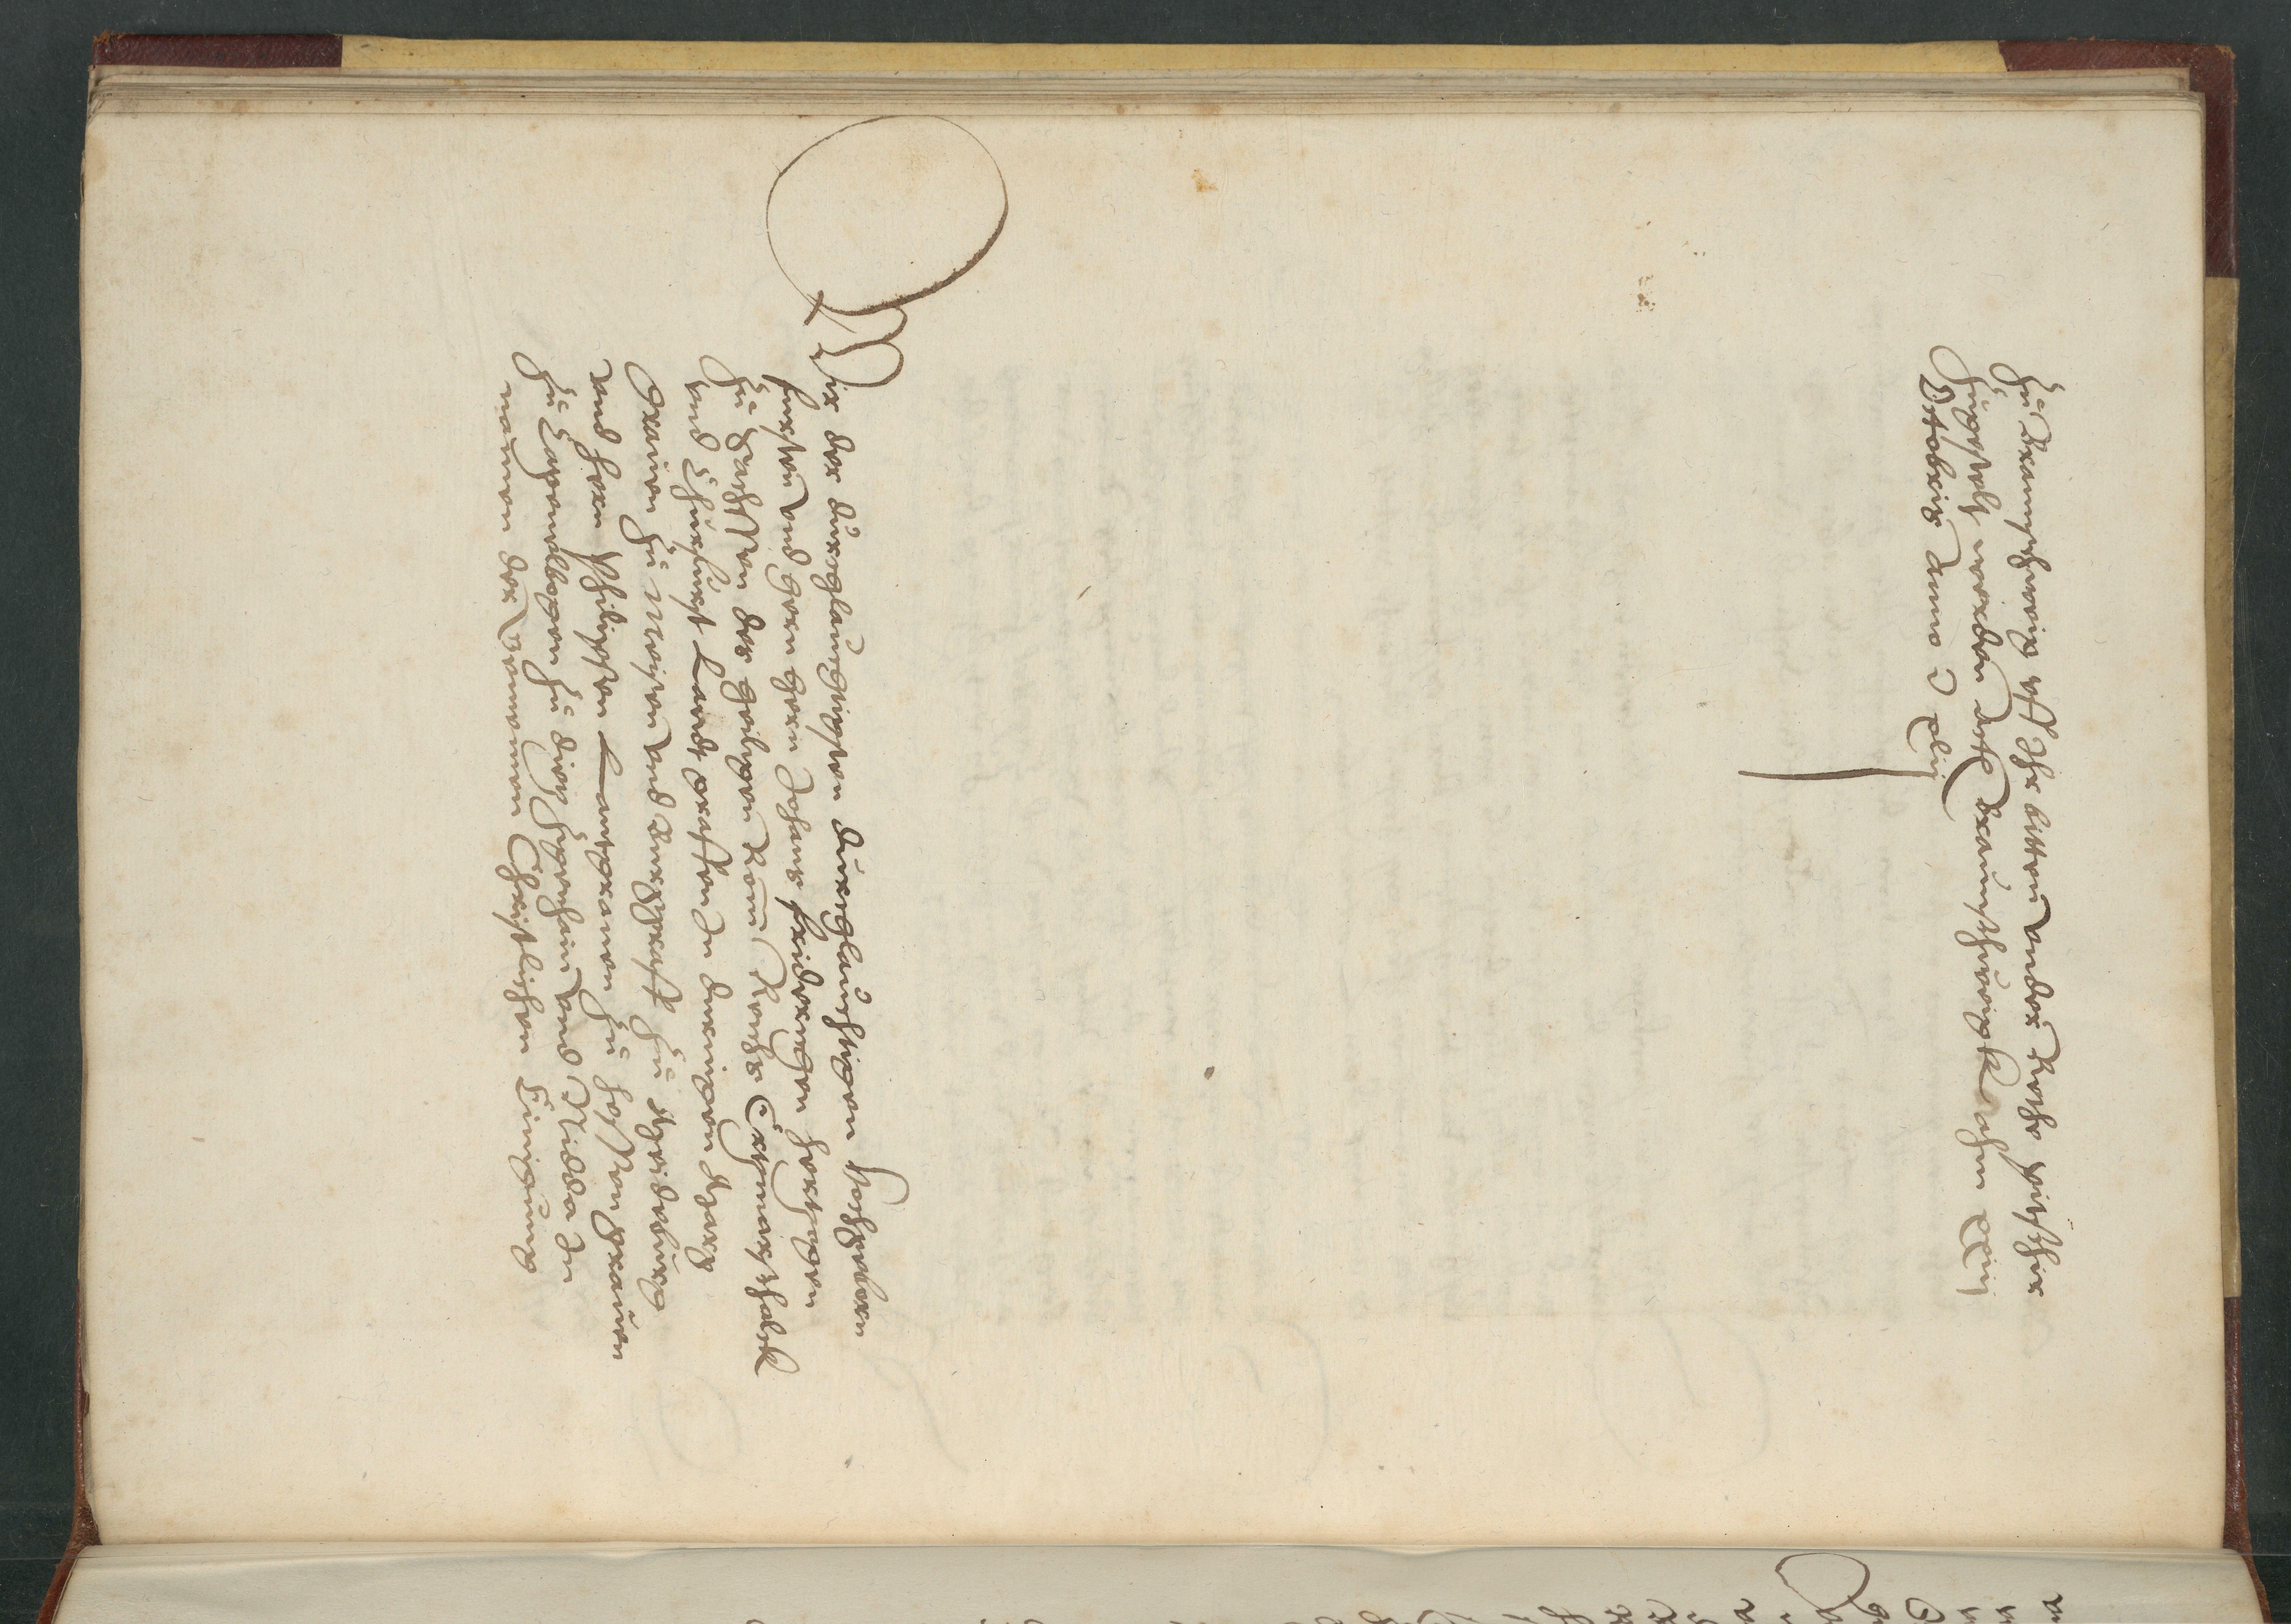 Zu Braunschweig vff Ihr bitten vnder Reths pitschir
zugestelt worden Act Braunschweigk ahm xxiij
Octobris Anno d xliij
Wir der durchlauchtigsten durchlauchtigen Hochgebornn
fursten vnd hern hern Johans fridrichen hertzogen
zu Sachssen des heiligen Rom Reichs Ertzmarschalck
vnd Churfurst Landtgraffen In duringen Marg
Grauen zu Meissen vnd Burggraff zu Magdeburg
vnd hern Philipssen Lantgrauen zu Hessen Grauen
zu Catzenelbogen zu dietz Zigenhain vnd Nidda In
namen der gemeinen Christlichen Einigung